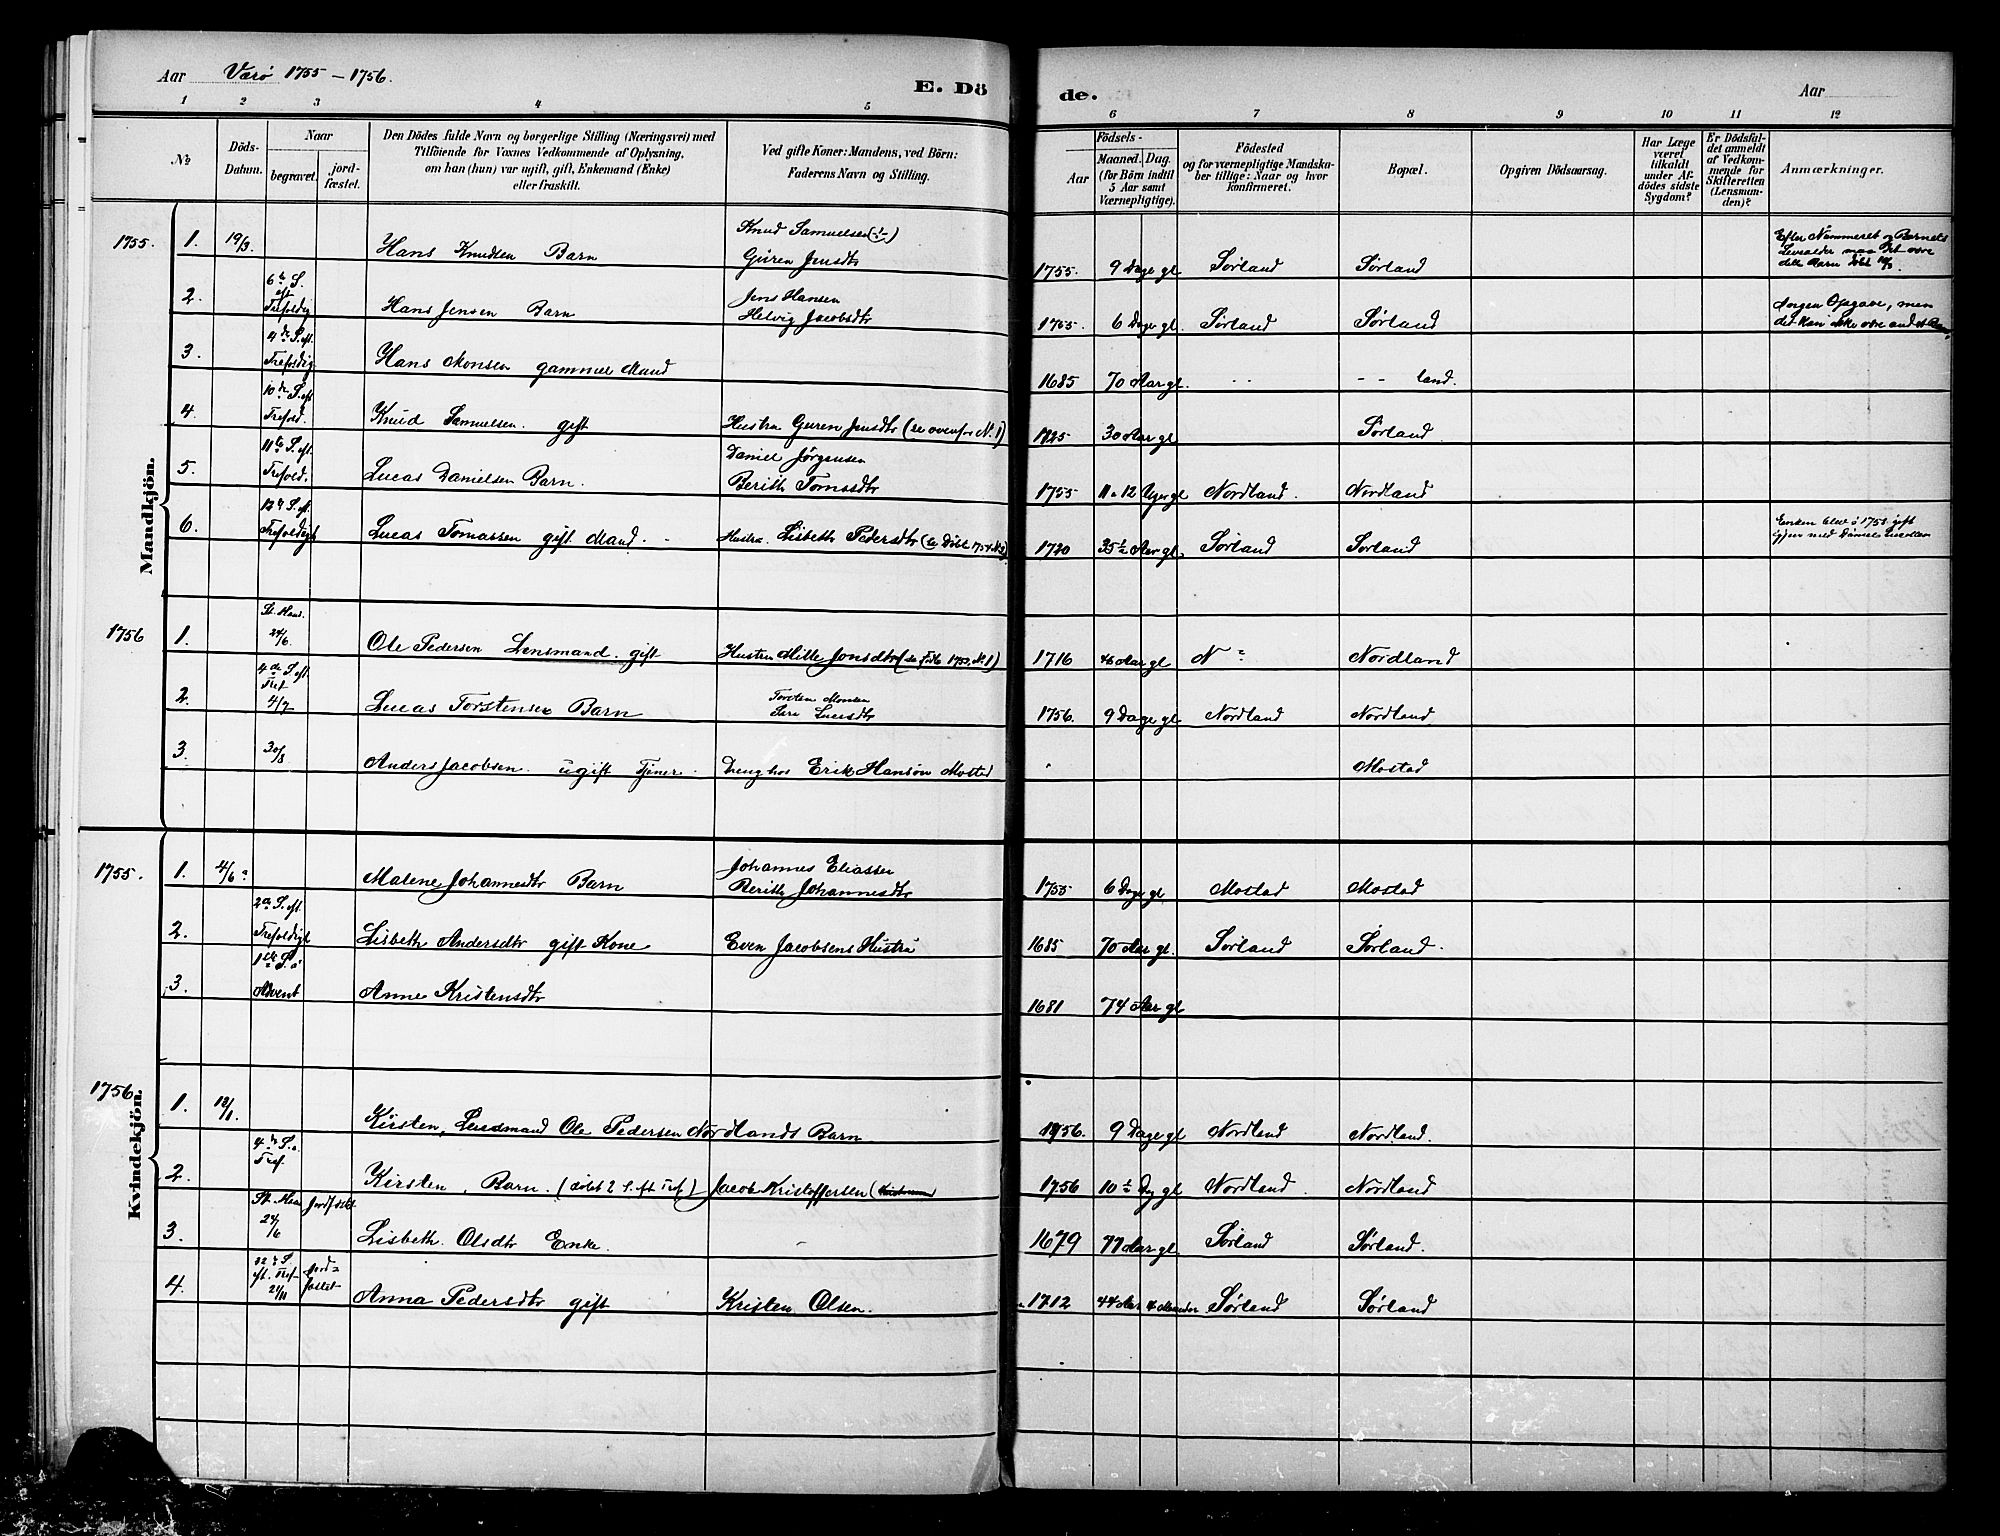 Aar Værö 1755 – 1756.
E. Dö
de.
Aar
1 2 3 4 5 6 7 8 9 10 11 12
No
Döds-Datum.
Naar
begravet.
jord-fæstet.
Den Dödes fulde Navn og borgerlige Stilling (Næringsvei) med
Tilföiende for Voxnes Vedkommende af Oplysning,
om han (hun) var ugift, gift, Enkemand (Enke)
eller fraskilt.
Ved gifte Koner: Mandens, ved Börn:
Faderens Navn og Stilling.
Födsels-
Aar
Maaned. Dag.
(for Börn indtil
5 Aar samt
Værnepligtige).
Födested
og for værnepligtige Mandska-
ber tillige: Naar og hvor
konfirmeret.
Bopæl.
Opgiven Dödsaarsag.
Har Læge
været
tilkaldt
under Af-
dödes sidste
Sygdom?
Er Dödsfal-
det anmeldt
af Vedkom-
mende for
Skifteretten
(Lensman-
den)?
Anmærkninger.
Mandkjön.
1755. 1. 19/3. Hans Knudsen Barn Knud Samuelsen
Guren Jensdtr 1755. 9 Dage gl Sørland Sørland Efter Nummeret og Barnets
Levealder maa
2. 6te S. eft Trefoldig Hans Jensen Barn Jens Hansen
Helvig Jacobsdtr 1755. 6 Dage gl. Sørland Sørland Ingen Opgave, men
det kan ikke være andet
3. 4de S. eft. Trefoldig Hans Monsen gammel Mand 1685 70 Aar gl. - - - - land.
4. 10de S. eft Trefold. Knud Samuelsen gift Hustru Guren Jensdtr (se ovenfor N. 1) 1725 30 Aar gl Sørland.
5. 11te S. eft. Trefold. Lucas Danielsen Barn. Daniel Jørgensen
Berith Tomasdtr 1755 11 a 12 Uger gl Nordland. Nordland
6. 12te S. eft. Trefoldigh Lucas Tomassen gift Mand. Hustru Lisbeth Pedersdtr 1720 35½ Aar gl. Sørland Sørland Enken blev i 175 gift
igjen med Daniel
1756 1. St. Hans. 24/6. Ole Pedersen Lensmand. gift Hustru Mille Jonsdtr 1716 Aar gl N Nordland
2. 4de S. eft. Tref 4/7 Lucas Torstensen Barn Torsten Monsen
1756. 9 Dage gl Nordland Nordland
3. 30/8 Anders Jacobsen. ugift Tjener. Dreng hos Erik Hanson Mostad Mostad
Kvindekjön.
1755. 1. 4/6 Malene Johannesdtr Barn Johannes Eliassen
Berith Johannesdtr 1755 6 Dage gl. Mostad Mostad
2. 2den S. eft. Trefoldigh Lisbeth Andersdtr gift Kone Even Jacobsens Hustru 1685 70 Aar gl. Sørland Sørland.
3. 1ste S. i Advent Anne Kristensdtr 1681 74 Aar gl
1756. 1. 12/1. Kirsten, Lensmand Ole Pedersen Nordlands Barn 1756. 9 Dage gl Nordland Nordland.
2. 4de S. e. Tref. Kirsten, Barn. (døbt 2 S. eft Tref) Jacob Kristoffersen 1756 10½ Dg gl Nordland. Nordland
3. St. Hans 24/6 Jordfæstet. Lisbeth Olsdtr Enke. - 1679 77 Aar gl. Sørland Sørland.
4. 22de S. eft. Tref 21/11 jord=fæstet Anna Pedersdtr gift Kristen Olsen. 1712 44 Aar 4 Maaneder Sørland Sørland